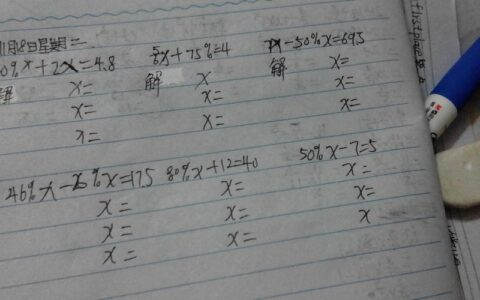 11月8日星期二
0%x+2x=4.8 x+75%=4 x-50%x=69.5
解 x= 解 x 解 x=
x= x= x=
x= x= x=
46%x-%x=17.5 80%x+12=40 50%x-7=5
x= x= x=
x= x= x=
x= x= x